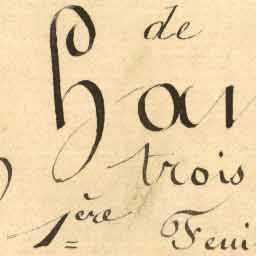 de
Hau
trois
1ère Feui